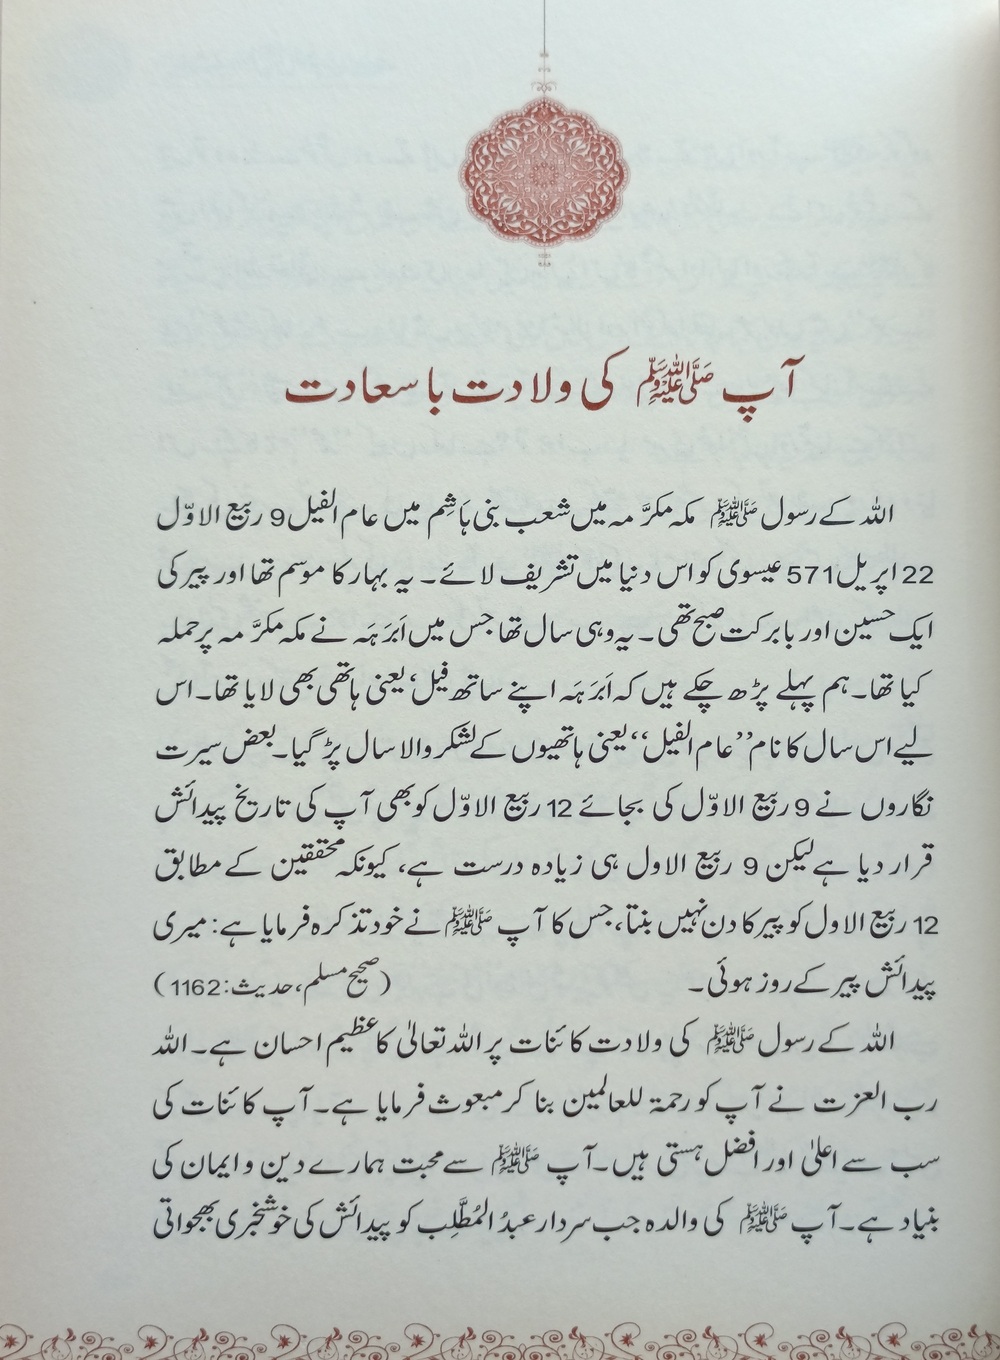 آپ ﷺ کی ولادت با سعادت
اللہ کے رسول ﷺ مکہ مکرَّ مہ میں شعب بنی ہَاشِم میں عام الفیل 9 ربیع الاوّل
22 اپریل 571 عیسوی کو اس دنیا میں تشریف لائے۔ یہ بہار کا موسم تھا اور پیر کی
ایک حسین اور بابرکت صبح تھی۔ یہ وہی سال تھا جس میں اَبرَہَہ نے مکہ مکرَّ مہ پر حملہ
کیا تھا۔ ہم پہلے پڑھ چکے ہیں کہ اَبرَہَہ اپنے ساتھ فیل، یعنی ہاتھی بھی لایا تھا۔ اس
لیے اس سال کا نام ’’عام الفیل‘‘ یعنی ہاتھیوں کے لشکر والا سال پڑ گیا۔ بعض سیرت
نگاروں نے 9 ربیع الاوّل کی بجائے 12 ربیع الاوّل کو بھی آپ کی تاریخ پیدائش
قرار دیا ہے لیکن 9 ربیع الاول ہی زیادہ درست ہے، کیونکہ محققین کے مطابق
12 ربیع الاول کو پیر کا دن نہیں بنتا، جس کا آپ ﷺ نے خود تذکرہ فرمایا ہے: میری
پیدائش پیر کے روز ہوئی۔ (صحیح مسلم، حدیث: 1162)
اللہ کے رسول ﷺ کی ولادت کائنات پر اللہ تعالیٰ کا عظیم احسان ہے۔ اللہ
رب العزت نے آپ کو رحمۃ للعالمین بنا کر مبعوث فرمایا ہے۔ آپ کائنات کی
سب سے اعلیٰ اور افضل ہستی ہیں۔ آپ ﷺ سے محبت ہمارے دین و ایمان کی
بنیاد ہے۔ آپ ﷺ کی والدہ جب سردار عبدُ المُطَّلِب کو پیدائش کی خوشخبری بھجواتی